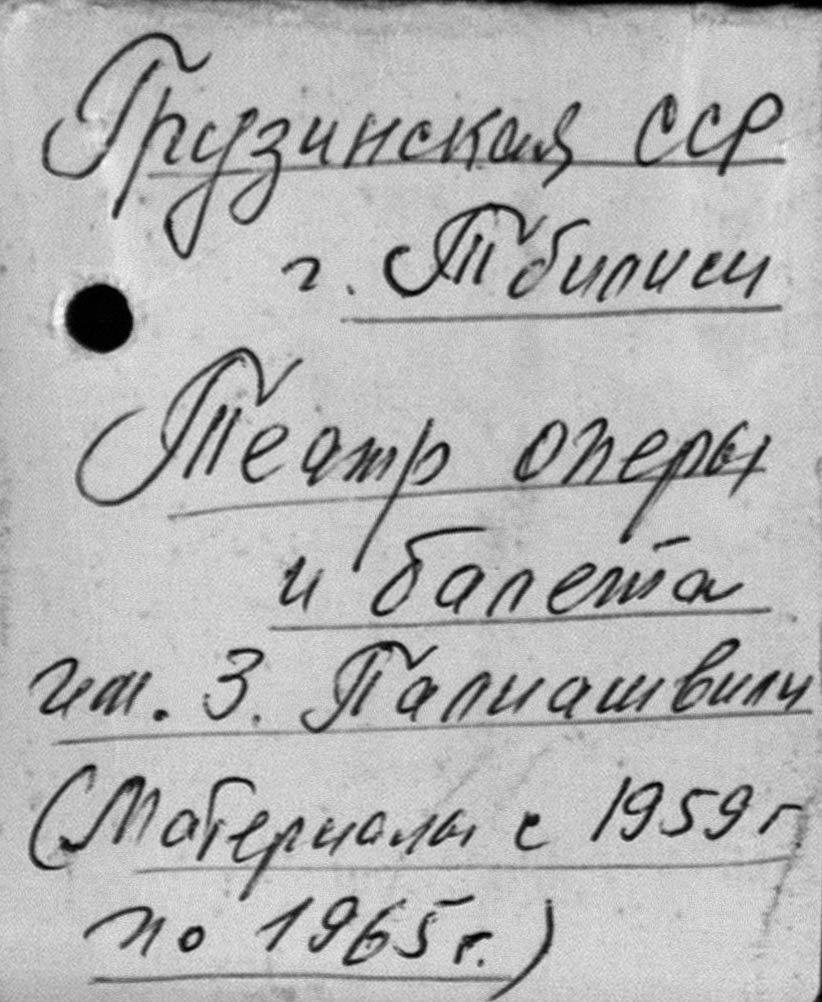 Грузинская ССР
г. Тбилиси
Театр оперы
и балета
им. З. Палиашвили
(Материалы с 1959 г
по 1965 г.)